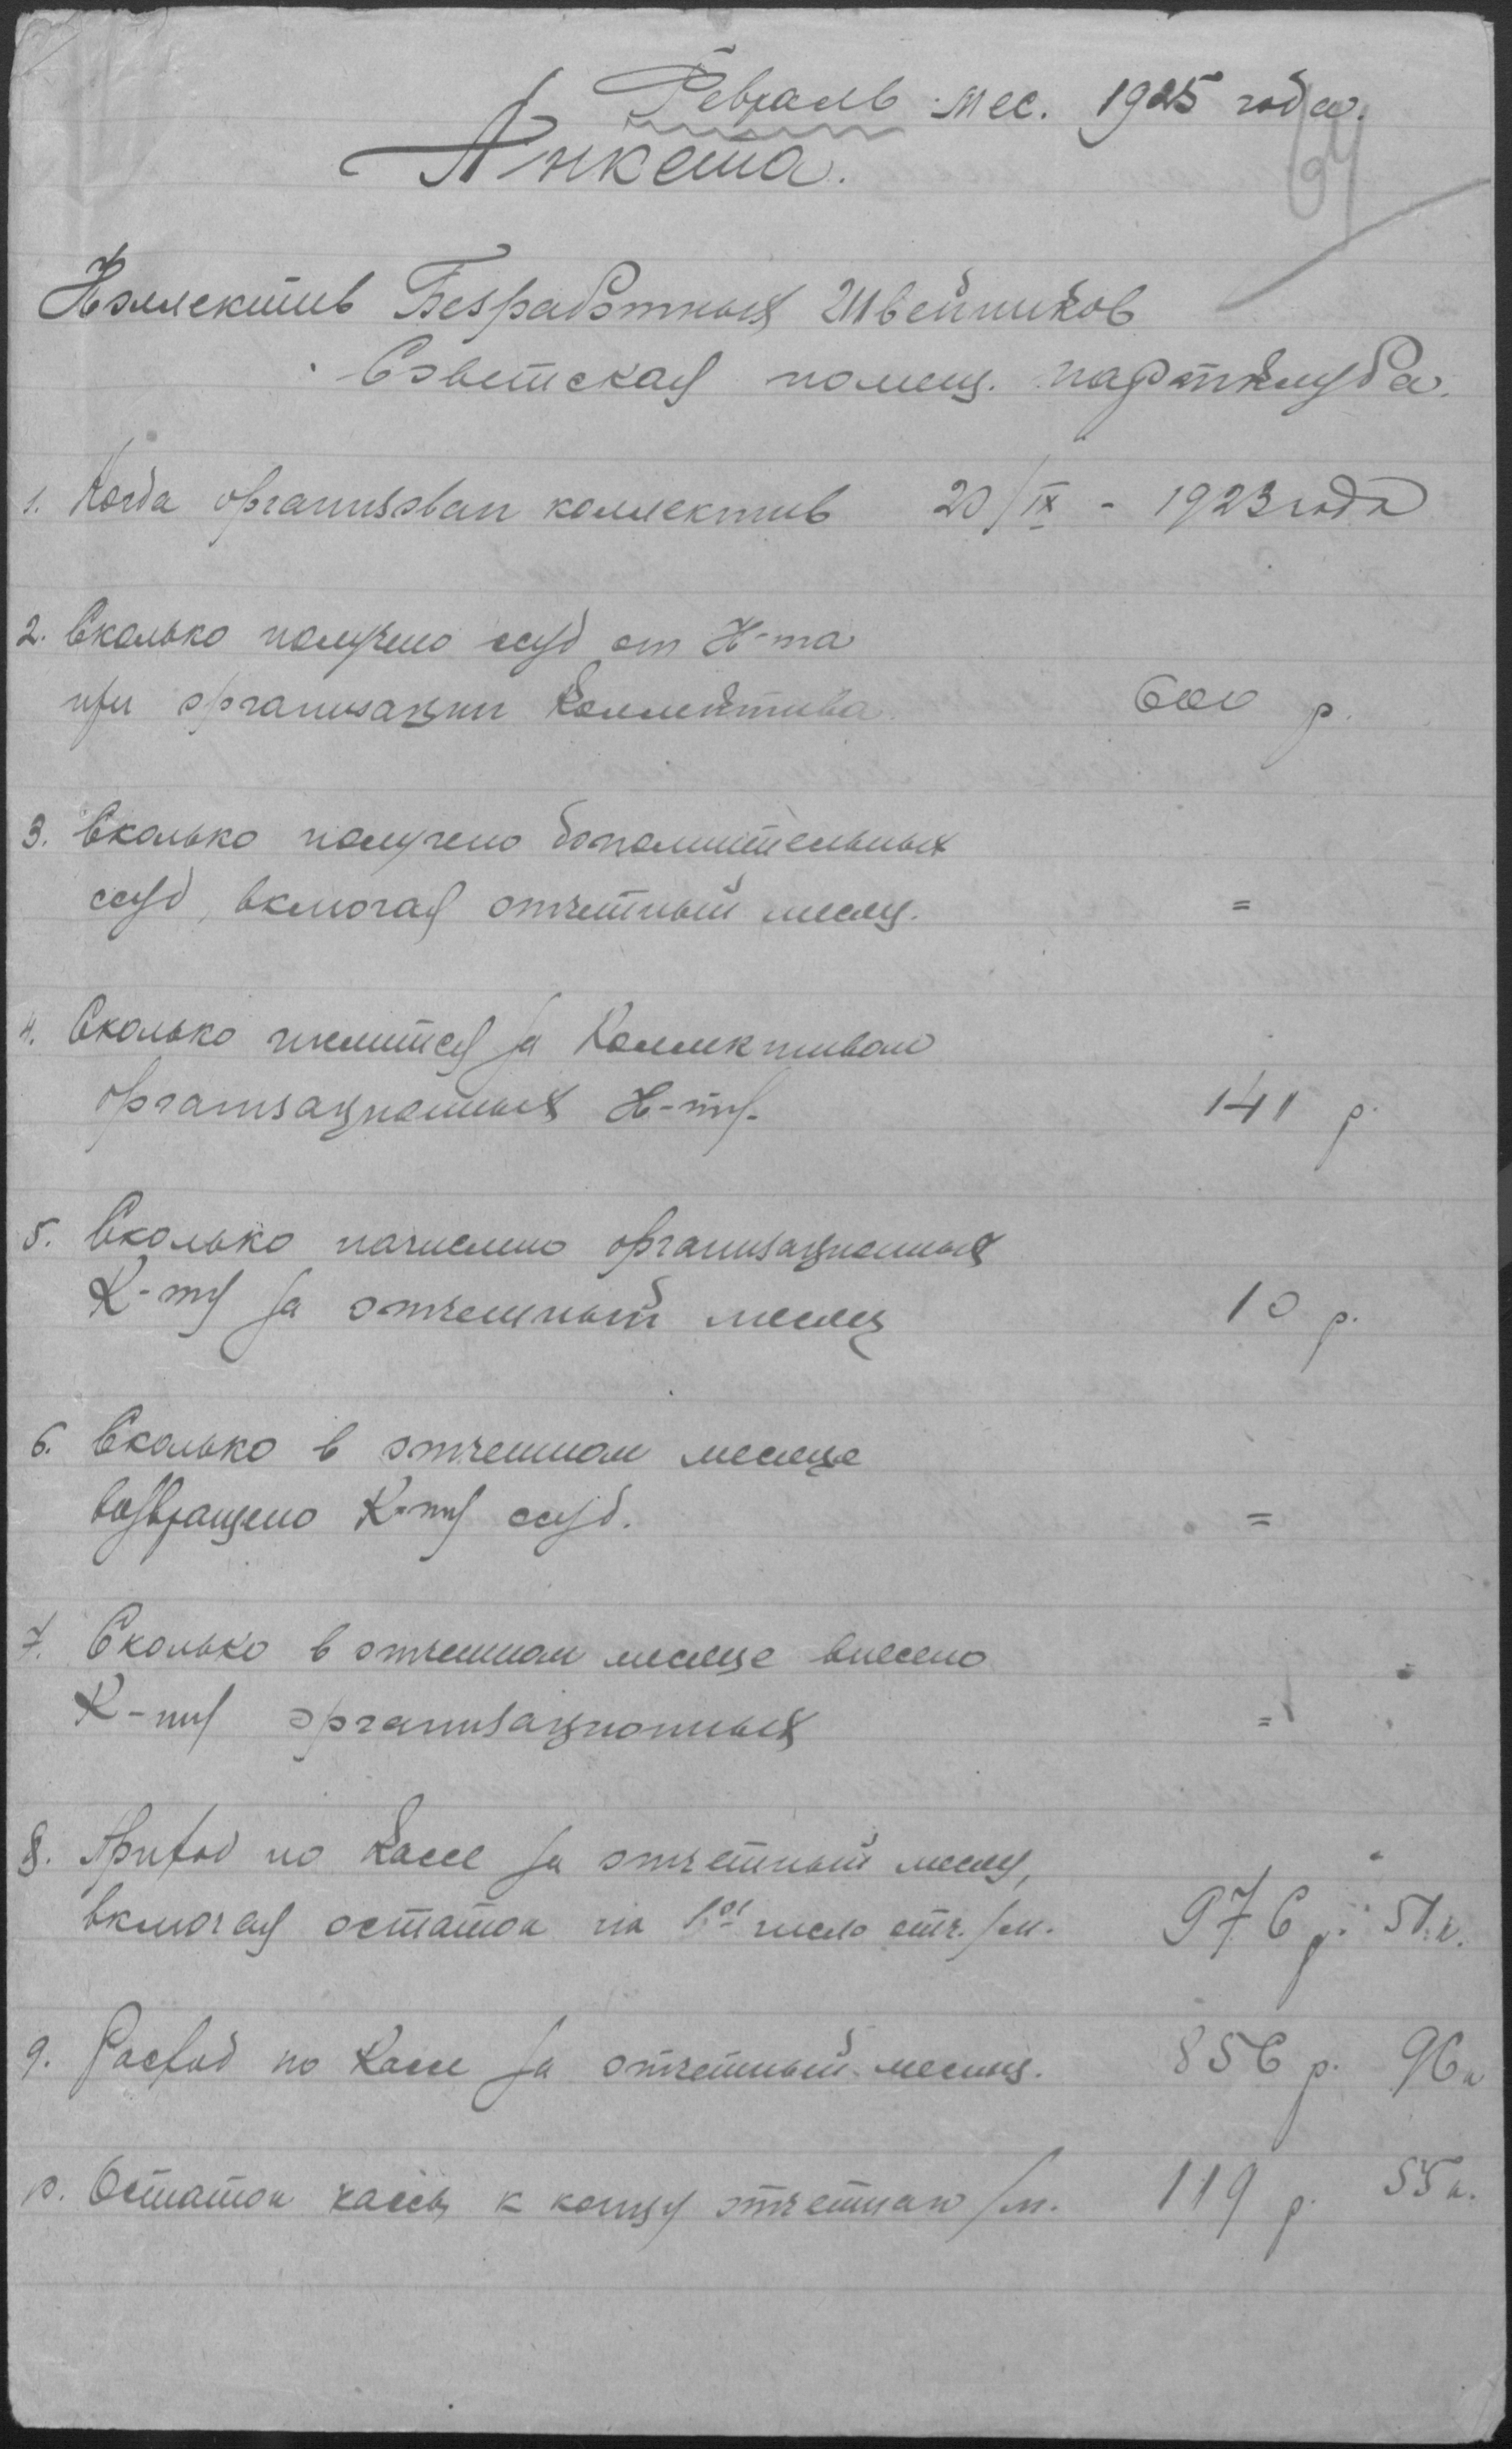 Февраль мес. 1925 года.
64
Анкета.
Коллектив Безработных Швейников
Советская помещ. партклуба.
1. Когда организован коллектив 20/IX - 1923 года
2. Сколько получено ссуд от К-та
при организации Коллектива 600 р.
3. Сколько получено дополнительных
ссуд, включая отчетный месяц. =
4. Сколько числится за Коллективом
организационных К-ту. 141 р.
5. Сколько начислено организационных
К-ту за отчетный месяц 10 р.
6. Сколько в отчетном месяце
возвращено К-ту ссуд. =
7. Сколько в отчетном месяце внесено
К-ту организационных =
8. Приход по Кассе за отчетный месяц,
включая остаток на 1ое число отч. /м. 976 р. 51 к.
9. Расход по Кассе за отчетный месяц. 856 р. 96 к
10. Остаток кассы к концу отчетнаго /м. 119 р. 55 к.